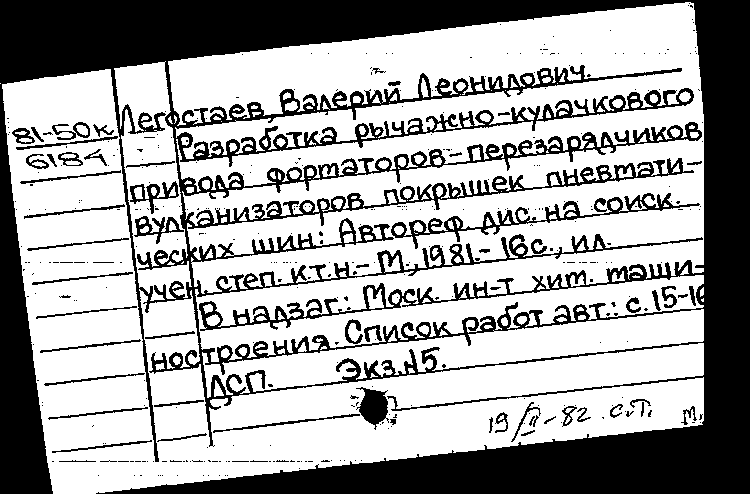 81-50к
6184
Легостаев, Валерий Леонидович.
Разработка рычажно-кулачкового
привода фортаторов-перезарядчиков
вулканизаторов покрышек пневмати-
ческих шин: Автореф. дис. на соиск.
учен. степ. к.т.н.- М., 1981.- 16с., ил.
В надзаг.: Моск. ин-т хим. маши-
ностроения. Список работ авт.: с.15-16
ДСП. Экз.N5.
19/II-82 с.т. м.